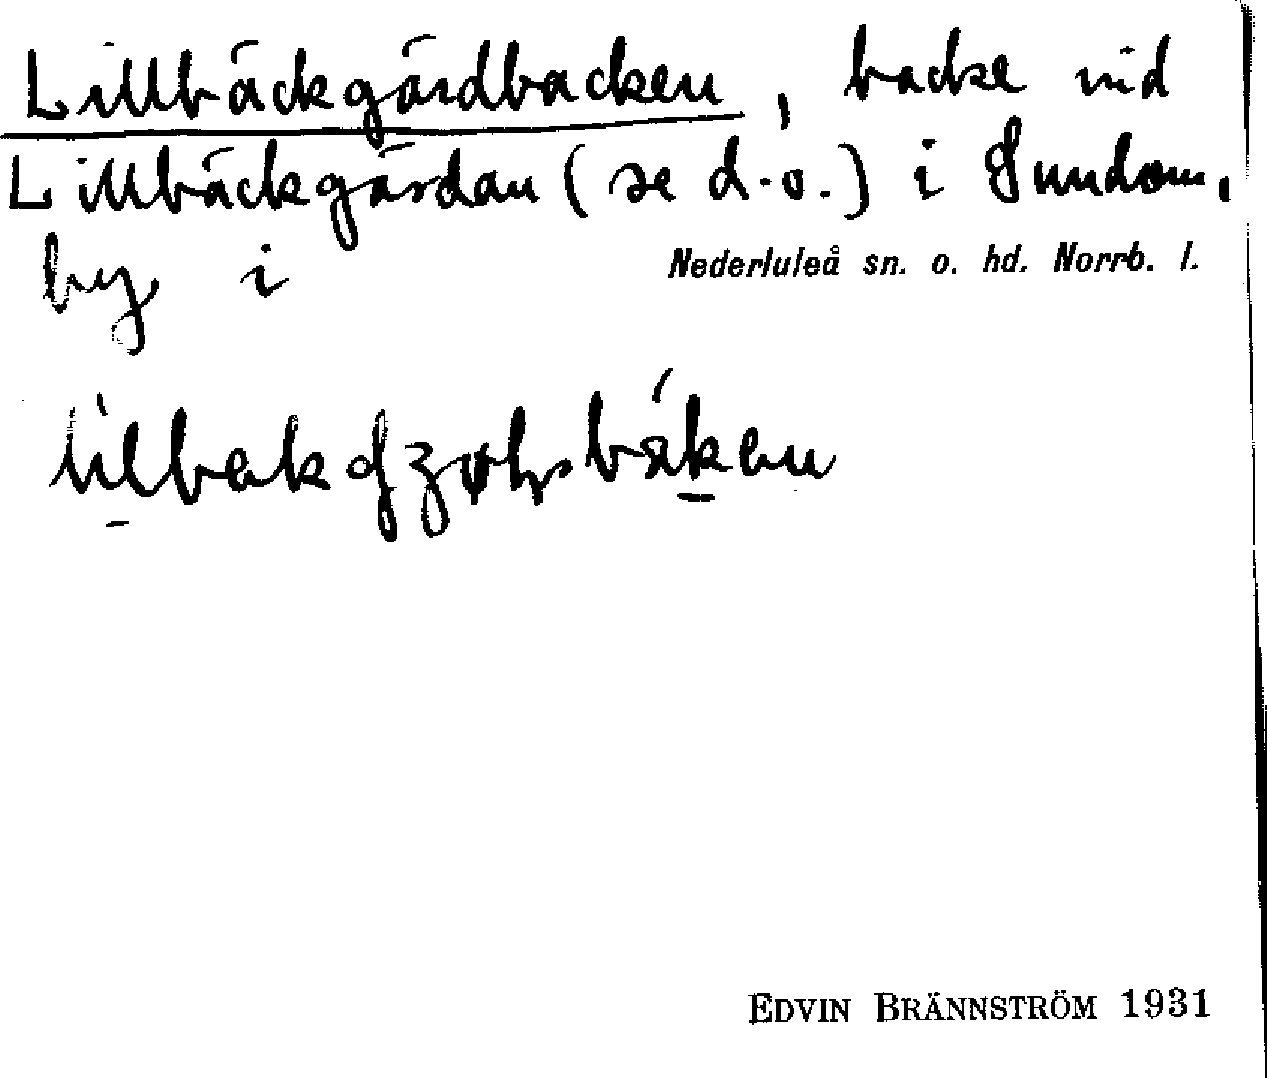 Lillbäckgärdbacken, backe vid
Lillbäckgärdan (se d. o.) i Sundom,
by i Nederluleå sn. o. hd. Norrb. l.
EDVIN BRÄNNSTRÖM 1931